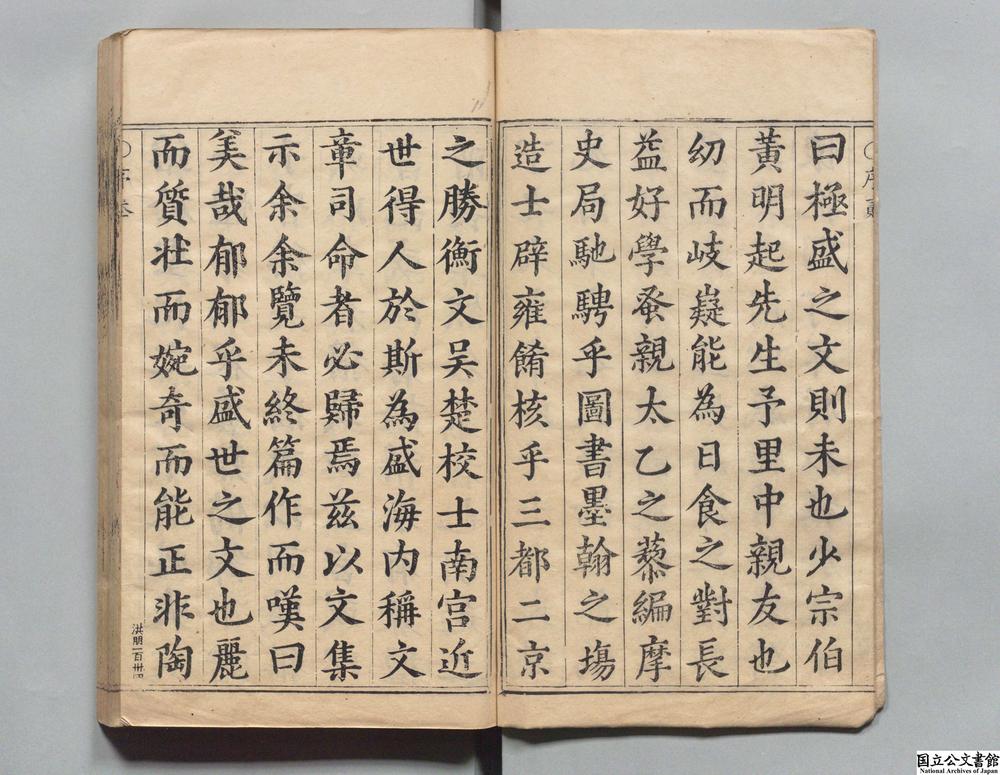 曰極盛之文則未也少宗伯
黃明起先生予里中親友也
幼而岐嶷能為日食之對長
益好學蚤親太乙之藜編摩
史局馳騁乎圖書墨翰之塲
造士辟雍餚核乎三都二京
之勝衡文吴楚校士南宫近
世得人於斯為盛海内稱文
章司命者必歸焉兹以文集
示余余覽未終篇作而嘆曰
美哉郁郁乎盛世之文也麗
而質壯而婉奇而能正非陶
洪明一百卅四
国立公文書館
National Archives of Japan